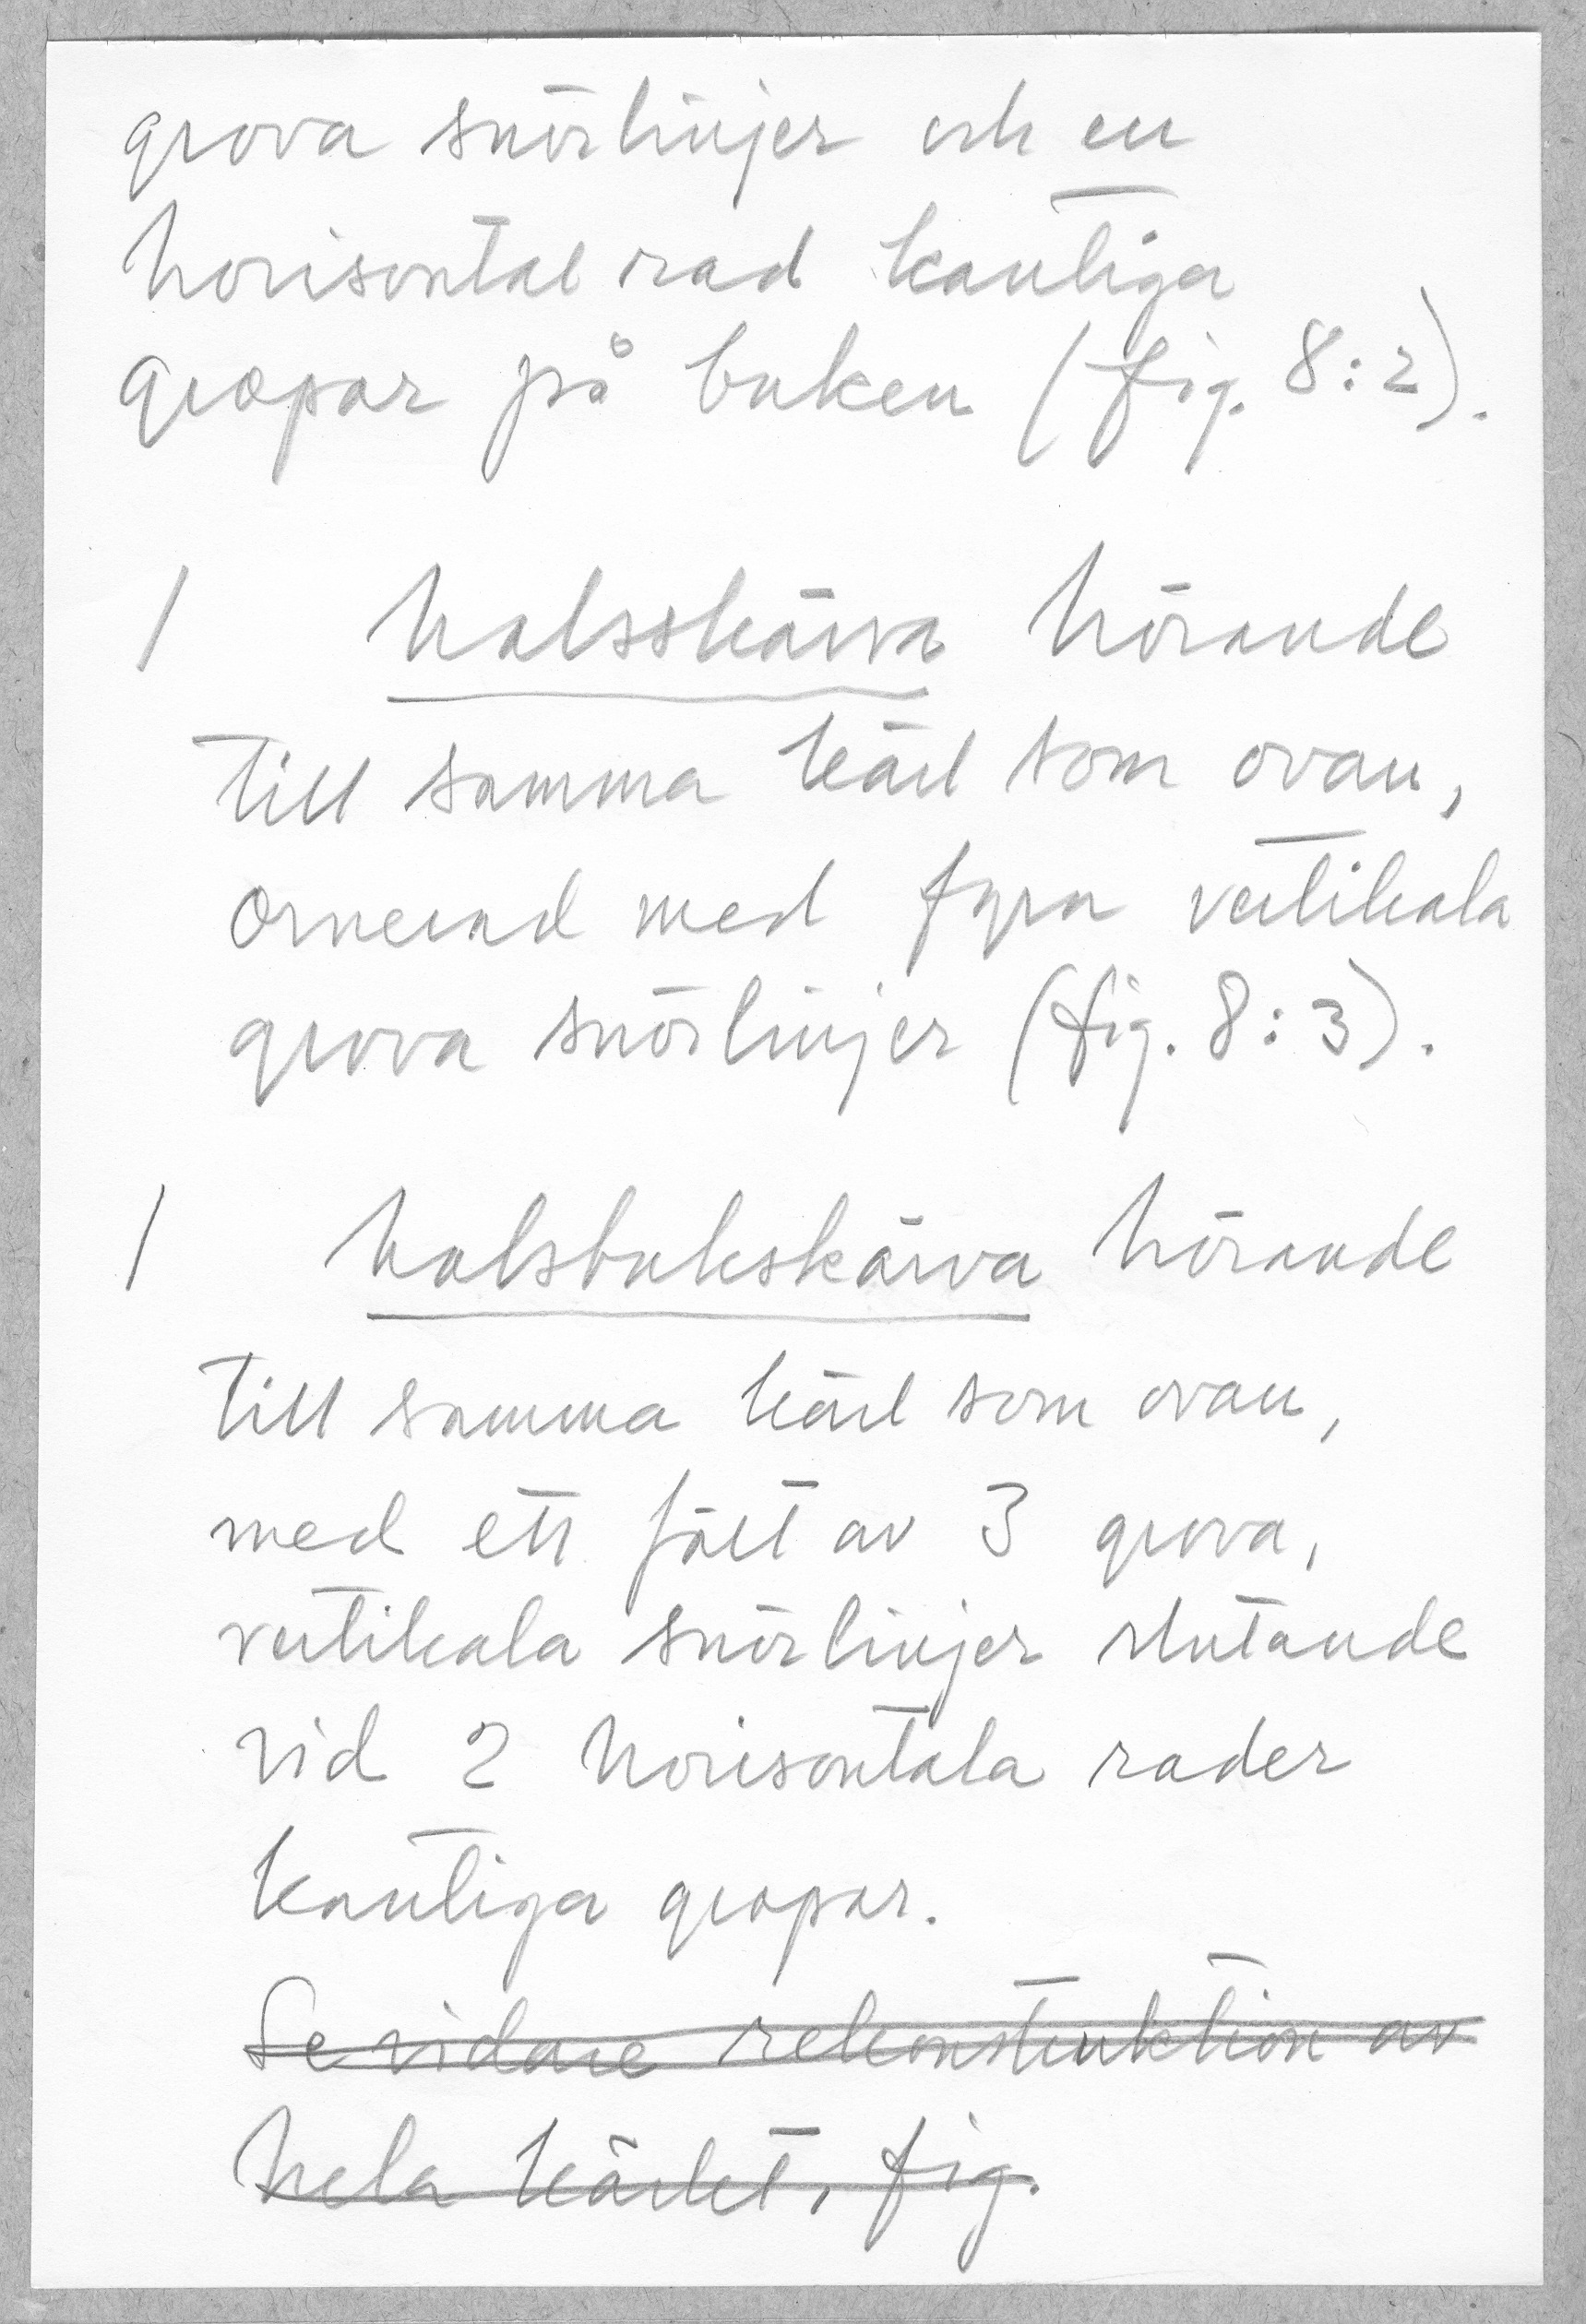 grova snörlinjer och en
horisontal rad kantiga
gropar på buken (fig. 8:2).
1 halsskärva hörande
till samma kärl som ovan,
ornerad med fyra vertikala
grova snörlinjer (fig. 8:3).
1 halsbukskärva hörande
till samma kärl som ovan,
med ett fält av 3 grova,
vertikala snörlinjer slutande
vid 2 horisontala rader
kantiga gropar.
Se vidare rekonstruktion av
hela kärlet, fig.